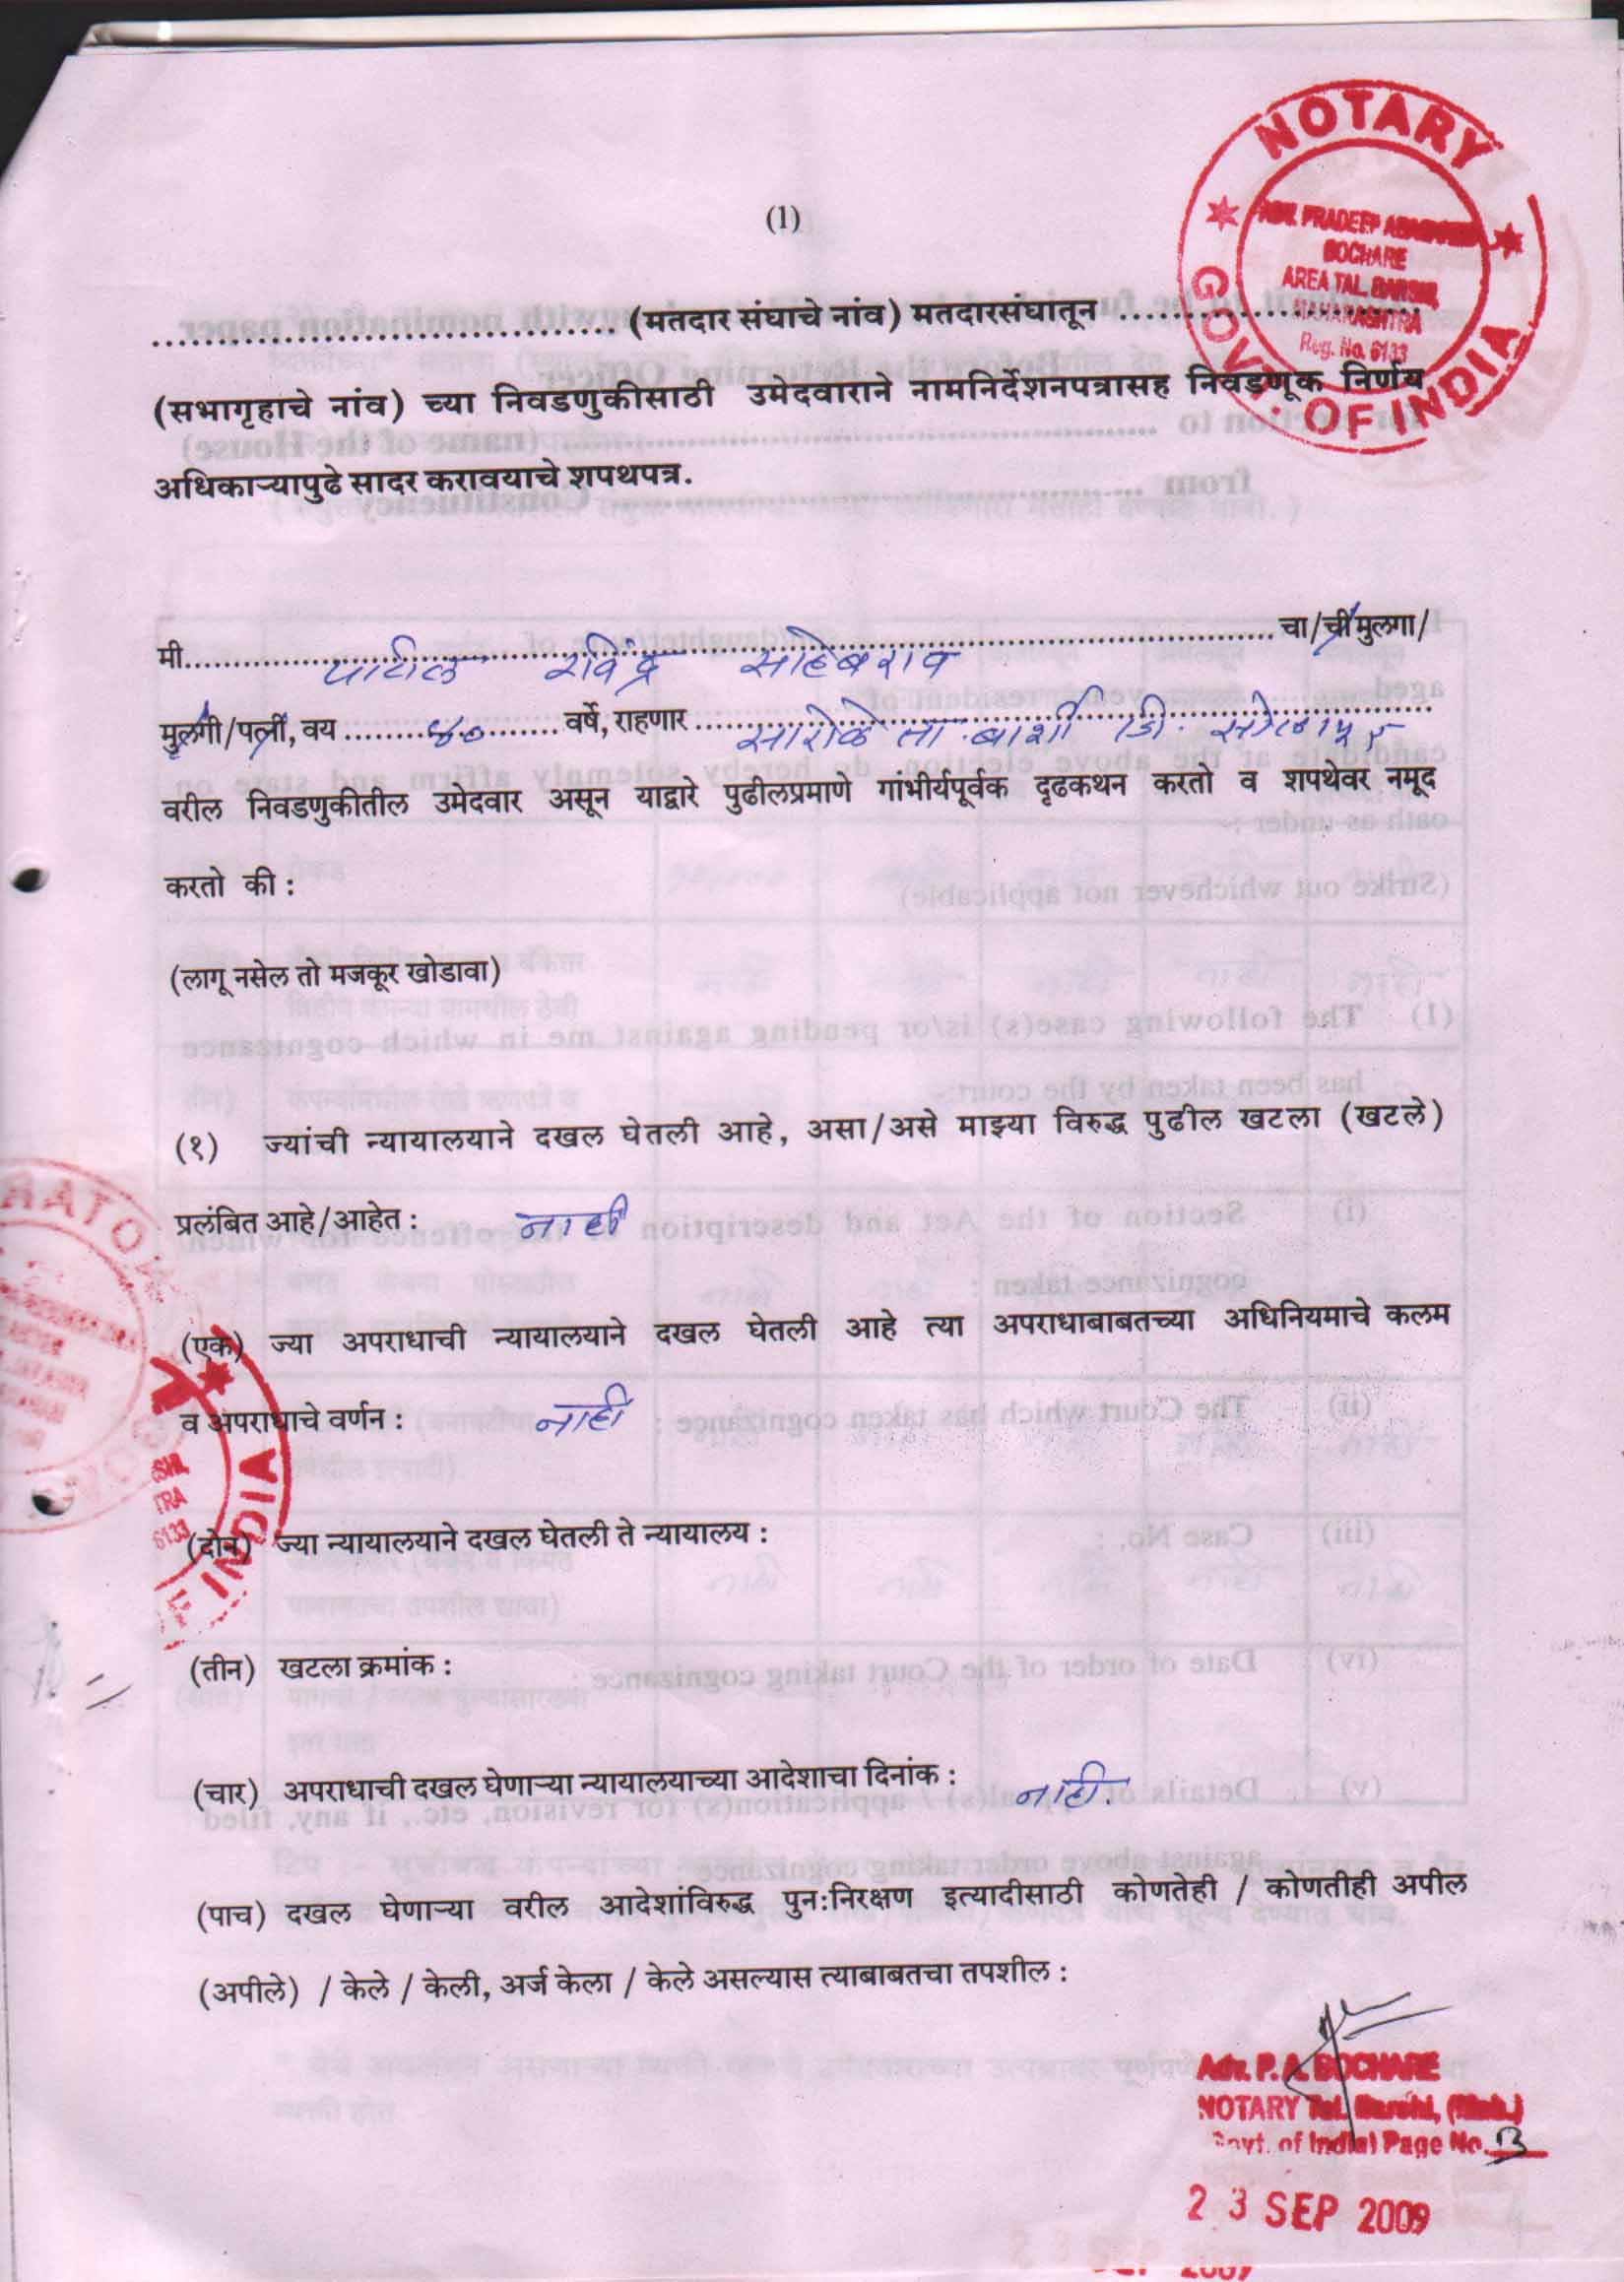 NOTARY
GOVT. OF INDIA
ADV. PRADEEP
BOCHARE
AREA TAL. BARSHI,
MAHARASHTRA
Reg. No. 6133
(1)
.................................... (मतदार संघाचे नांव) मतदारसंघातून ........................
(सभागृहाचे नांव) च्या निवडणुकीसाठी उमेदवाराने नामनिर्देशनपत्रासह निवडणूक निर्णय
अधिकाऱ्यापुढे सादर करावयाचे शपथपत्र.
मी.......... पाटील रविंद्र साहेबराव .......... चा/ची मुलगा/
मुलगी/पत्नी, वय ........ ४० ........ वर्षे, राहणार ........ सारोळे ता. बार्शी जि. सोलापूर
वरील निवडणुकीतील उमेदवार असून याद्वारे पुढीलप्रमाणे गांभीर्यपूर्वक दृढकथन करतो व शपथेवर नमूद
करतो की :
(लागू नसेल तो मजकूर खोडावा)
(१) ज्यांची न्यायालयाने दखल घेतली आहे, असा/असे माझ्या विरुद्ध पुढील खटला (खटले)
प्रलंबित आहे/आहेत : नाही
(एक) ज्या अपराधाची न्यायालयाने दखल घेतली आहे त्या अपराधाबाबतच्या अधिनियमाचे कलम
व अपराधाचे वर्णन : नाही
(दोन) ज्या न्यायालयाने दखल घेतली ते न्यायालय :
(तीन) खटला क्रमांक :
(चार) अपराधाची दखल घेणाऱ्या न्यायालयाच्या आदेशाचा दिनांक : नाही.
(पाच) दखल घेणाऱ्या वरील आदेशांविरुद्ध पुन:निरक्षण इत्यादीसाठी कोणतेही / कोणतीही अपील
(अपीले) / केले / केली, अर्ज केला / केले असल्यास त्याबाबतचा तपशील :
Adv. P. A. BOCHARE
NOTARY Tal. Barshi, (Mah.)
Govt. of India) Page No. 13
23 SEP 2009